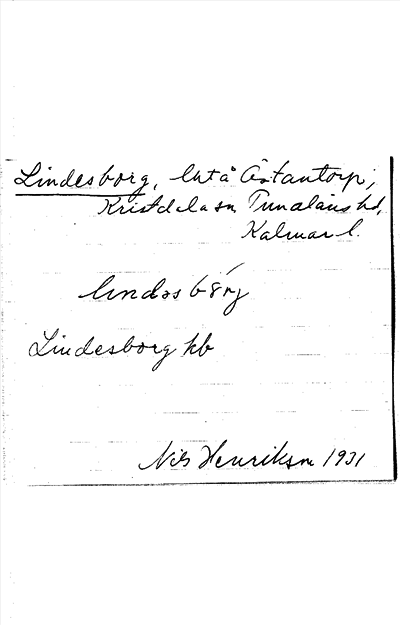 Lindesborg, lht å Åstantorp,
Kristdala sn, Tunaläns hd,
Kalmar l.
lindəs bǒrj
Lindesborg kb
Nils Henrikson 1931